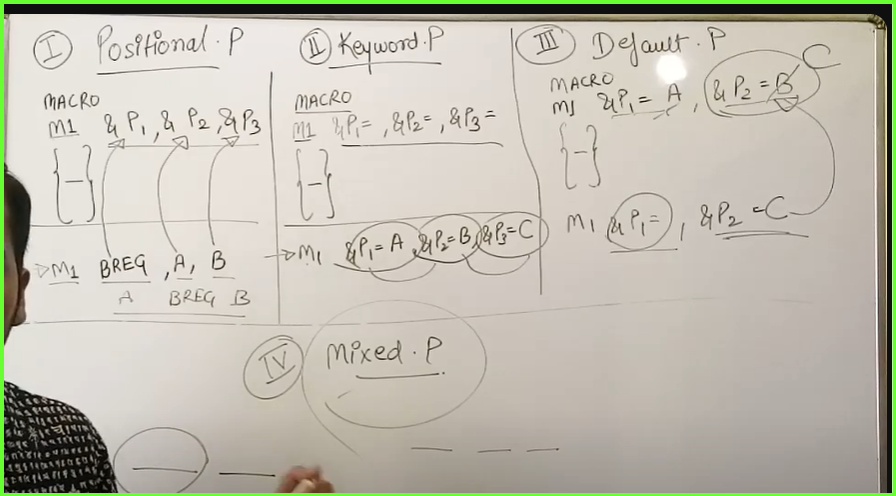 I Positional.P
MACRO
M1 &P1, &P2, &P3
{-}
M1 BREG, A, B
A BREG B
II Keyword.P
MACRO
M1 &P1=, &P2=, &P3=
{-}
M1 &P1=A, &P2=B, &P3=C
III Default.P
MACRO
M1 &P1=A, &P2=B C
{-}
M1 &P1=, &P2=C
IV Mixed.P